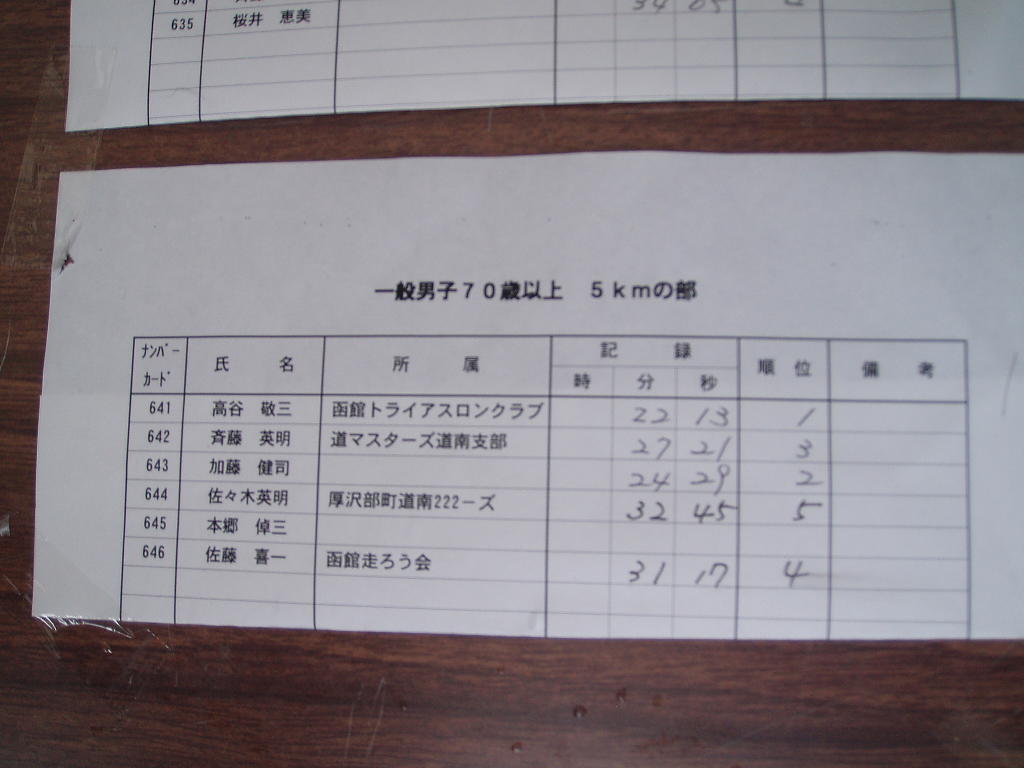 635 桜井 恵美
34 05
一般男子70歳以上 5kmの部
ナンバーカード 氏 名 所 属 記 録 順 位 備 考
時 分 秒
641 高谷 敬三 函館トライアスロンクラブ 22 13 1
642 斉藤 英明 道マスターズ道南支部 27 21 3
643 加藤 健司 24 29 2
644 佐々木英明 厚沢部町道南222ーズ 32 45 5
645 本郷 倬三
646 佐藤 喜一 函館走ろう会 31 17 4